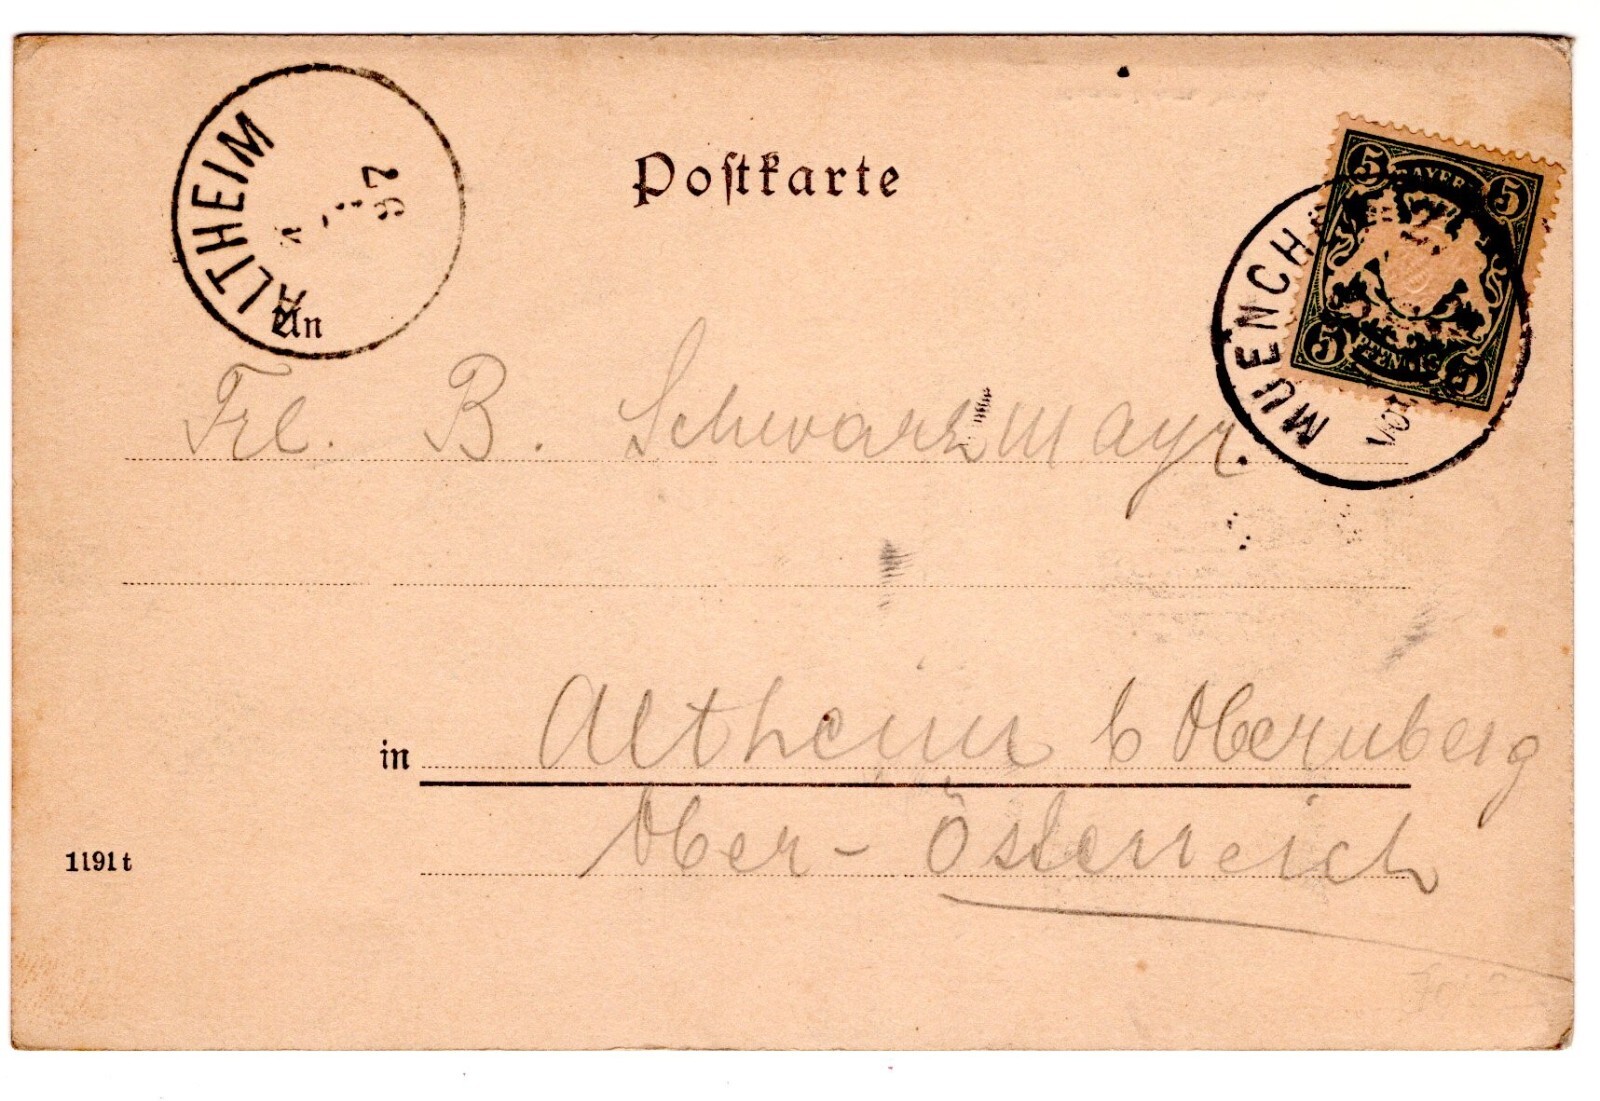 Postkarte
ALTHEIM
97
BAYERN
5 5
5 5
PFENNIG
MUENCHEN
VOR
An
Frl. B. Schwarzmayr.
in Altheim b Obernberg
Ober-Österreich
1191t